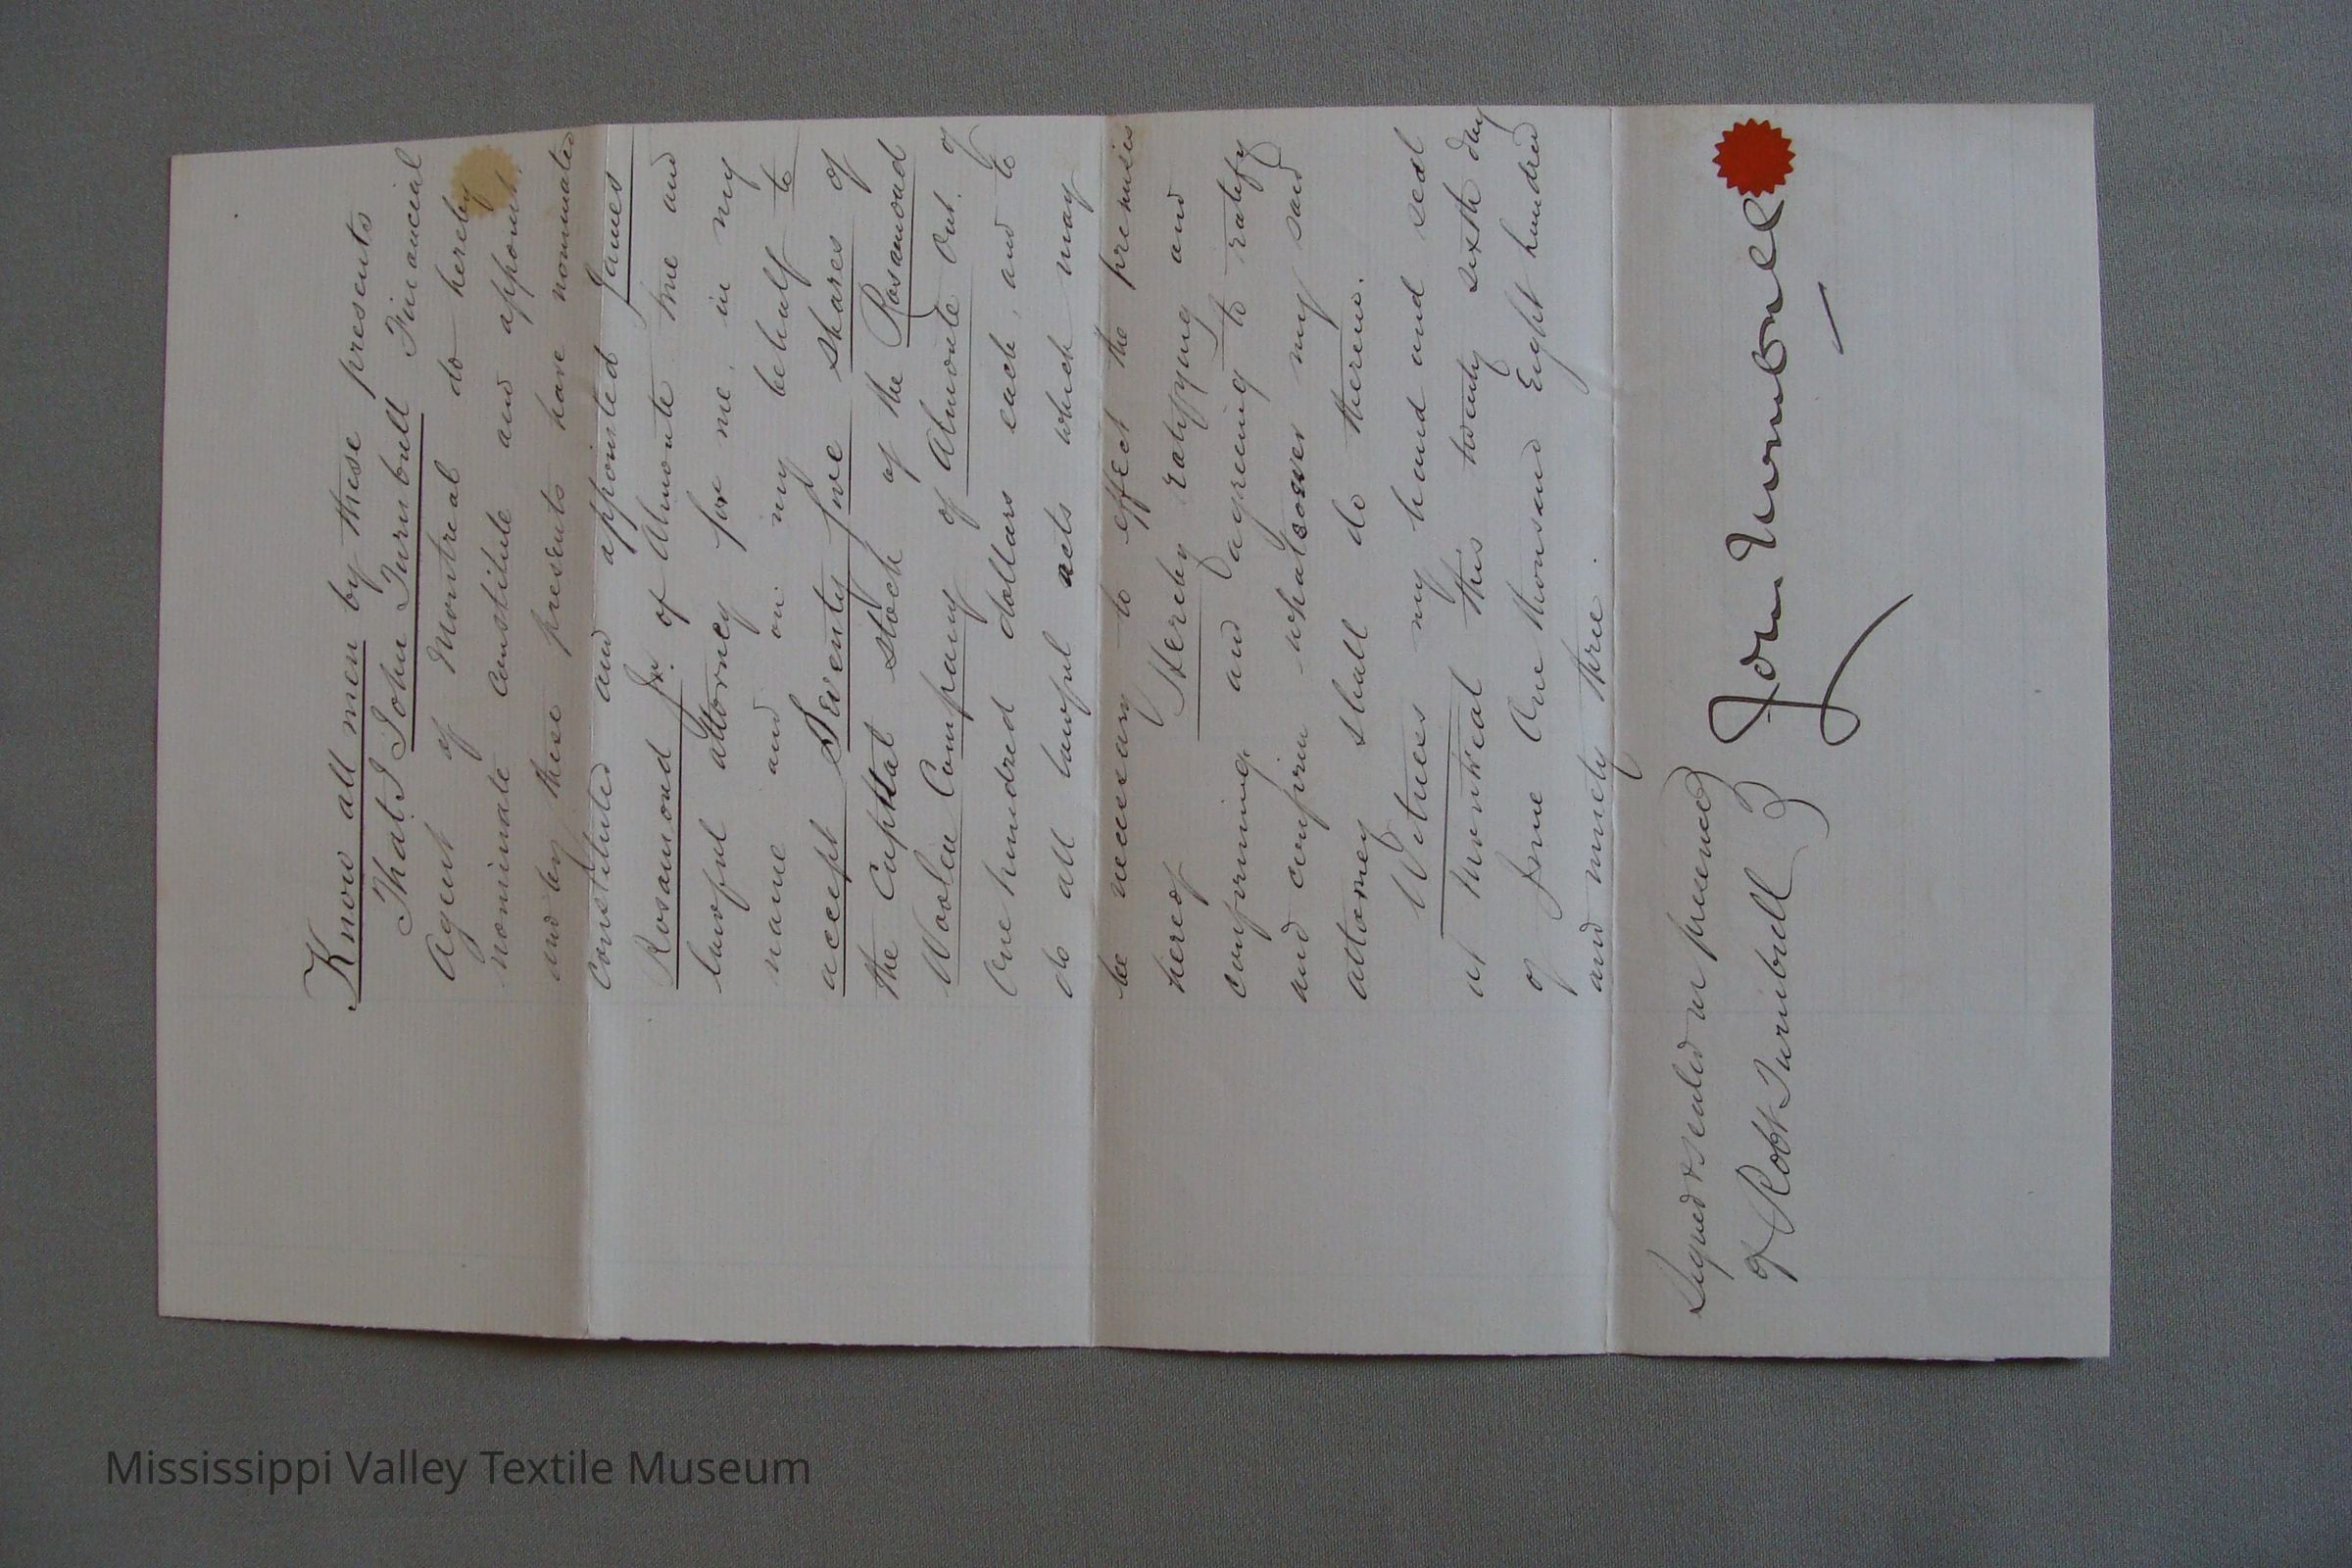 Know all men by these presents
That I John Turnbull Financial
Agent of Montreal do hereby
nominate constitute and appoint.
and by these presents have nominated
constituted and appointed James
Rosamond Jr. of Almonte true and
lawful attorney for me, in my
name and on my behalf to
accept Seventy five shares of
the Capital stock of the Rosamond
Woolen Company of Almonte Ont. of
One hundred dollars each, and to
do all lawful acts which may
be necessary to effect the premises
hereof Hereby ratifying and
confirming and agreeing to ratify
and confirm whatsoever my said
attorney shall do therein.
Witness my hand and seal
at Montreal this twenty sixth day
of June One thousand Eight hundred
and ninety three.
Signed & sealed in presence
of Robt Turnbull
John Turnbull
Mississippi Valley Textile Museum